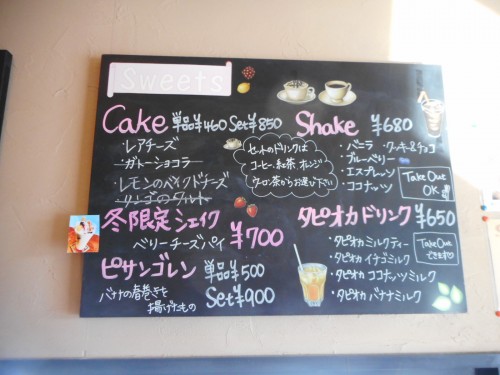 Sweets
Cake 単品¥460 Set¥850
・レアチーズ
・ガトーショコラ
・レモンのベイクドチーズ
・リンゴのタルト
セットのドリンクは
コーヒー、紅茶、オレンジ
ウーロン茶からお選び下さい
Shake ¥680
・バニラ ・クッキー&チョコ
・ブルーベリー
・エスプレッソ
・ココナッツ
Take Out
OK
冬限定シェイク
ベリーチーズパイ ¥700
タピオカドリンク ¥650
・タピオカミルクティー
・タピオカ イチゴミルク
・タピオカ ココナッツミルク
・タピオカ バナナミルク
Take Out
できます♡
ピサンゴレン 単品¥500
バナナの春巻きを
揚げたもの Set¥900